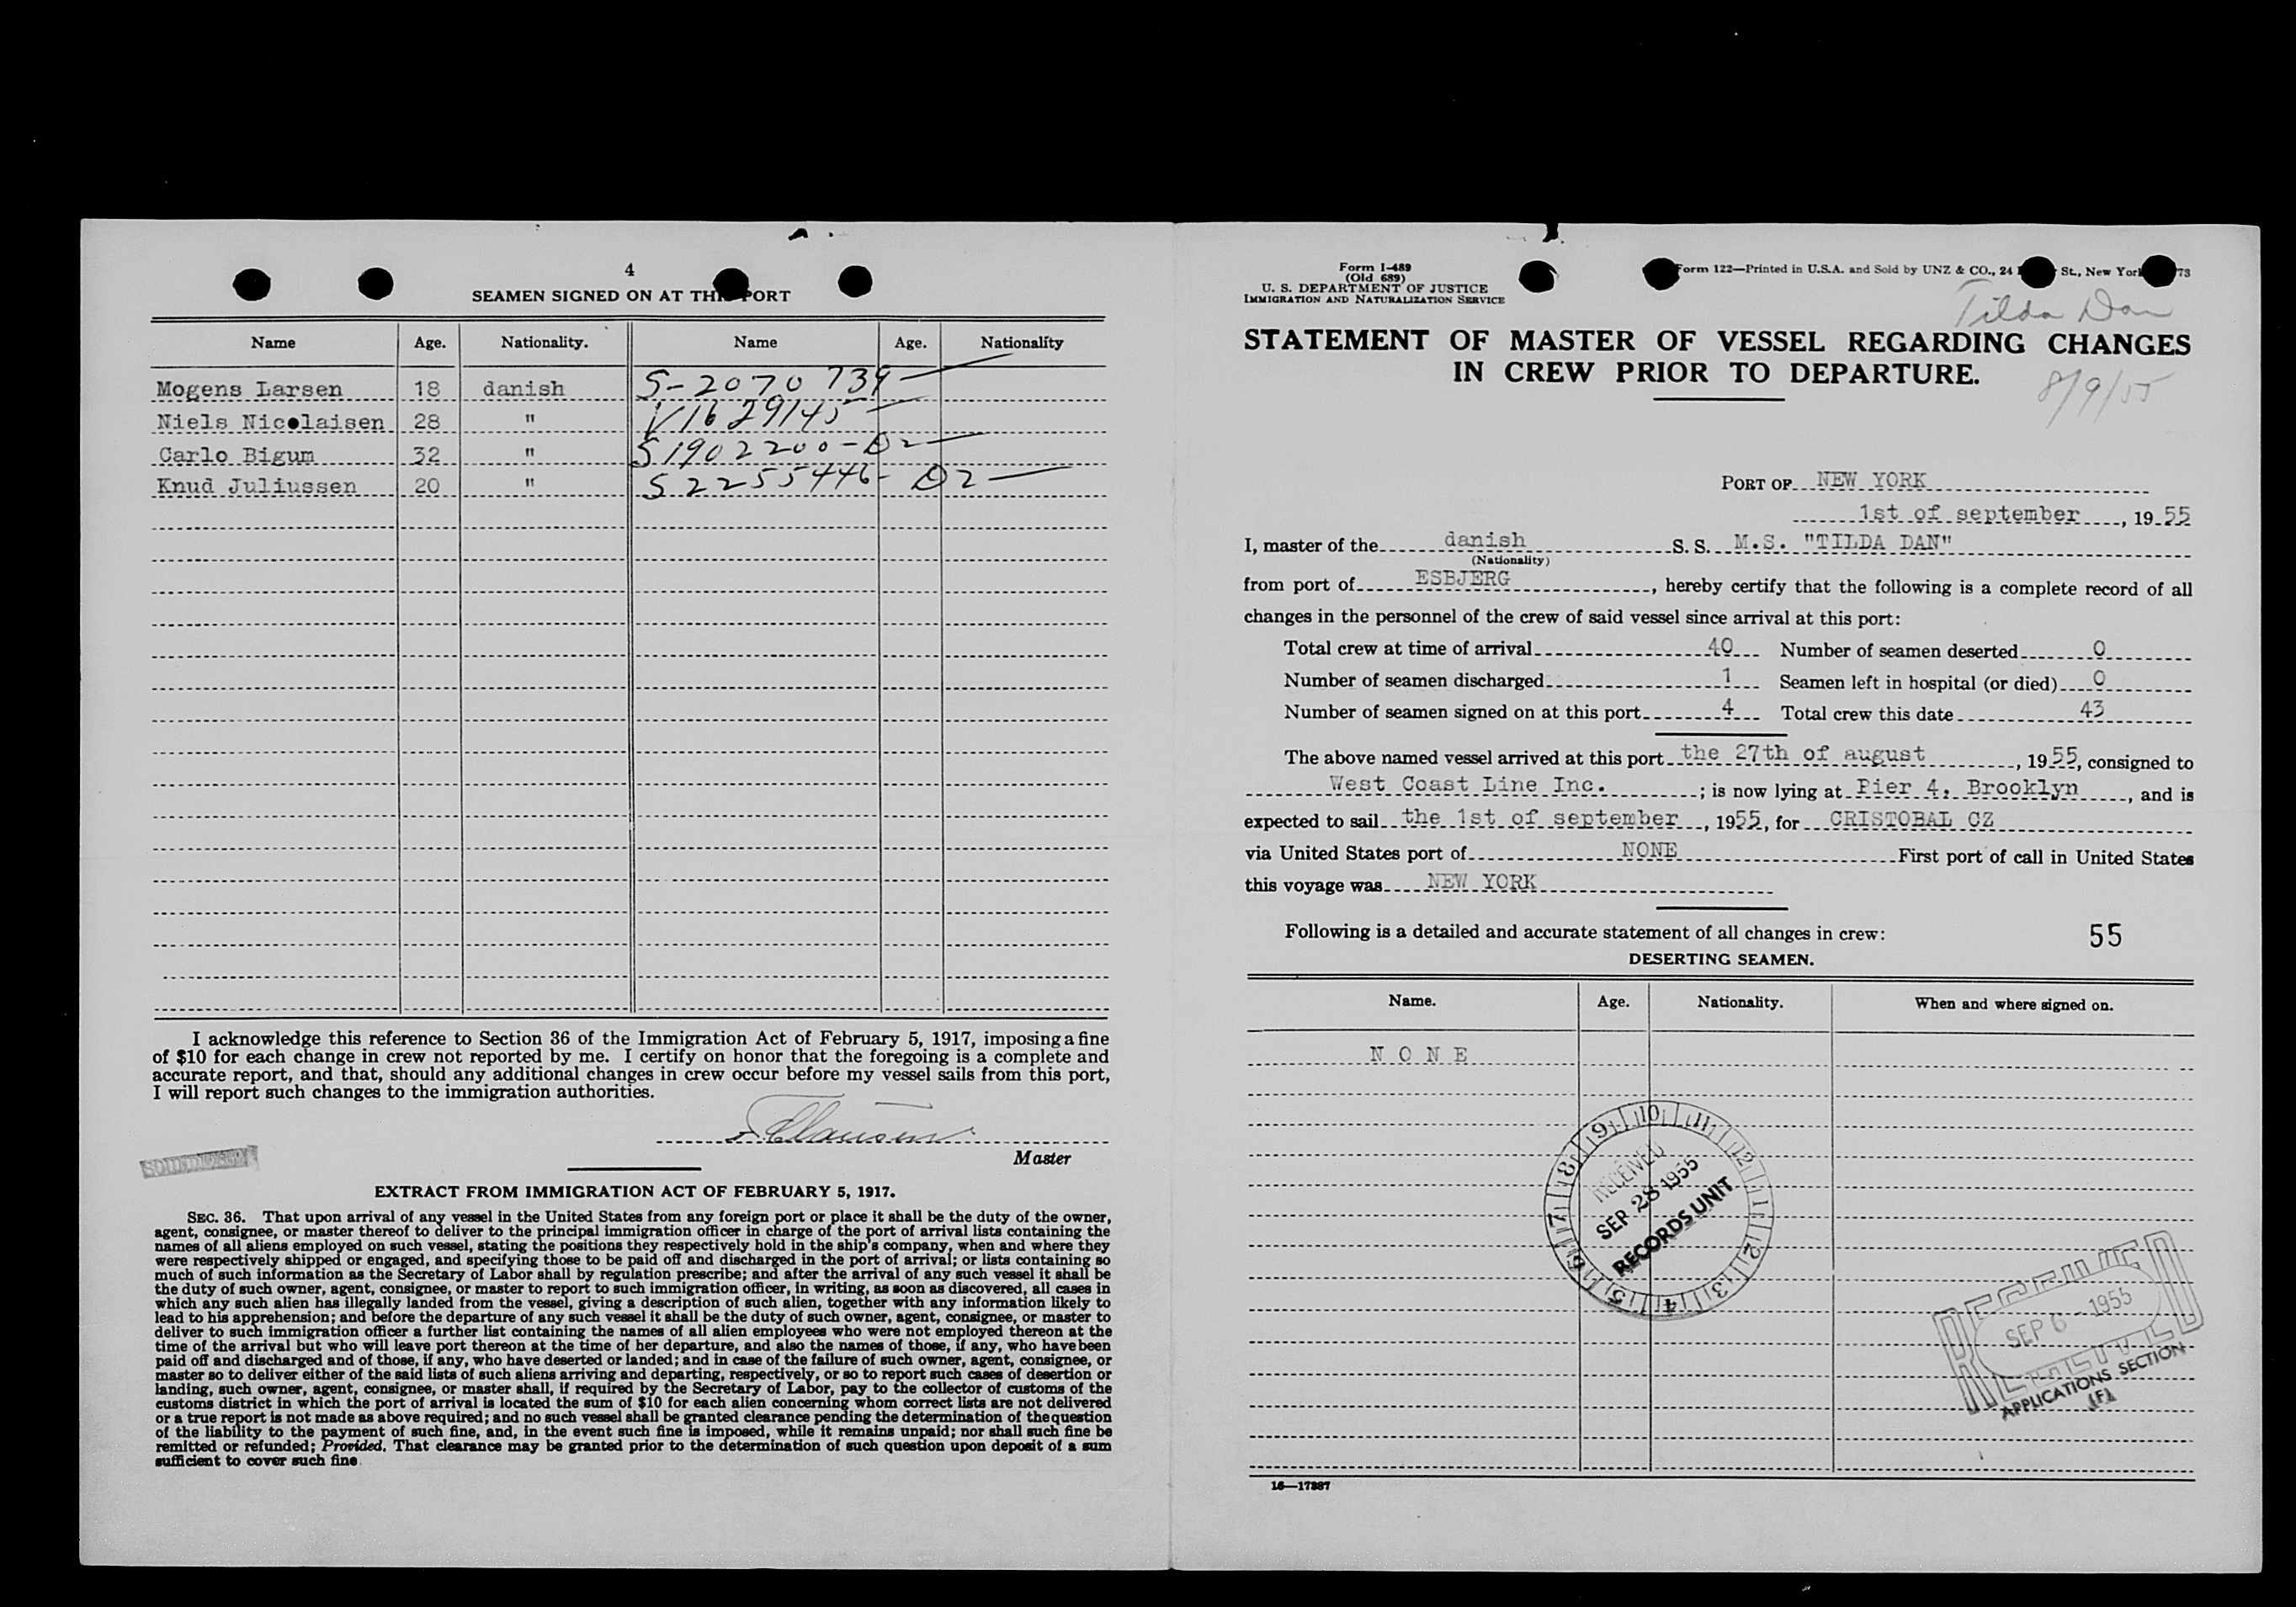 4
SEAMEN SIGNED ON AT THIS PORT
Name Age. Nationality. Name Age. Nationality
Mogens Larsen 18 danish S-2070 739
Niels Nicolaisen 28 " V1629145
Carlo Bigum 32 " S1902200-D2
Knud Juliussen 20 " S2255446-D2
I acknowledge this reference to Section 36 of the Immigration Act of February 5, 1917, imposing a fine
of $10 for each change in crew not reported by me. I certify on honor that the foregoing is a complete and
accurate report, and that, should any additional changes in crew occur before my vessel sails from this port,
I will report such changes to the immigration authorities.
Clausen
Master
EXTRACT FROM IMMIGRATION ACT OF FEBRUARY 5, 1917.
SEC. 36. That upon arrival of any vessel in the United States from any foreign port or place it shall be the duty of the owner,
agent, consignee, or master thereof to deliver to the principal immigration officer in charge of the port of arrival lists containing the
names of all aliens employed on such vessel, stating the positions they respectively hold in the ship's company, when and where they
were respectively shipped or engaged, and specifying those to be paid off and discharged in the port of arrival; or lists containing so
much of such information as the Secretary of Labor shall by regulation prescribe; and after the arrival of any such vessel it shall be
the duty of such owner, agent, consignee, or master to report to such immigration officer, in writing, as soon as discovered, all cases in
which any such alien has illegally landed from the vessel, giving a description of such alien, together with any information likely to
lead to his apprehension; and before the departure of any such vessel it shall be the duty of such owner, agent, consignee, or master to
deliver to such immigration officer a further list containing the names of all alien employees who were not employed thereon at the
time of the arrival but who will leave port thereon at the time of her departure, and also the names of those, if any, who have been
paid off and discharged and of those, if any, who have deserted or landed; and in case of the failure of such owner, agent, consignee, or
master so to deliver either of the said lists of such aliens arriving and departing, respectively, or so to report such cases of desertion or
landing, such owner, agent, consignee, or master shall, if required by the Secretary of Labor, pay to the collector of customs of the
customs district in which the port of arrival is located the sum of $10 for each alien concerning whom correct lists are not delivered
or a true report is not made as above required; and no such vessel shall be granted clearance pending the determination of the question
of the liability to the payment of such fine, and, in the event such fine is imposed, while it remains unpaid; nor shall such fine be
remitted or refunded; Provided, That clearance may be granted prior to the determination of such question upon deposit of a sum
sufficient to cover such fine.
Form I-489
(Old 689)
U. S. DEPARTMENT OF JUSTICE
IMMIGRATION AND NATURALIZATION SERVICE
Form 122—Printed in U.S.A. and Sold by UNZ & CO., 24 St., New York 73
Tilda Dan
STATEMENT OF MASTER OF VESSEL REGARDING CHANGES
IN CREW PRIOR TO DEPARTURE.
8/9/55
PORT OF NEW YORK
1st of september, 1955
I, master of the danish S. S. M.S. "TILDA DAN"
(Nationality)
from port of ESBJERG, hereby certify that the following is a complete record of all
changes in the personnel of the crew of said vessel since arrival at this port:
Total crew at time of arrival 40 Number of seamen deserted 0
Number of seamen discharged 1 Seamen left in hospital (or died) 0
Number of seamen signed on at this port 4 Total crew this date 43
The above named vessel arrived at this port the 27th of august, 1955, consigned to
West Coast Line Inc.; is now lying at Pier 4, Brooklyn, and is
expected to sail the 1st of september, 1955, for CRISTOBAL CZ
via United States port of NONE First port of call in United States
this voyage was NEW YORK
Following is a detailed and accurate statement of all changes in crew: 55
DESERTING SEAMEN.
Name. Age. Nationality. When and where signed on.
NONE
9 10 11 12 1 2 3 4 5 6 7 8
RECEIVED
SEP 28 1955
RECORDS UNIT
RECEIVED
SEP 6 - 1955
APPLICATIONS SECTION
(F)
16—17387